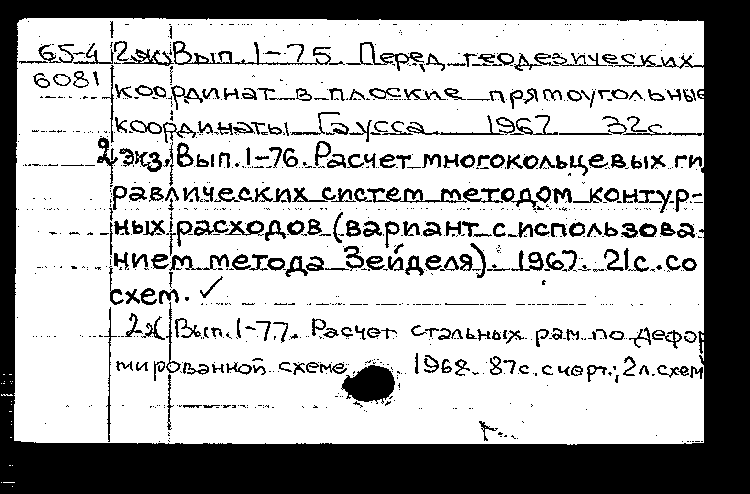 65-4 2экз Вып. 1-75. Перед геодезических
6081 координат в плоские прямоугольные
координаты Гаусса. 1967. 32с.
2 экз. Вып. 1-76. Расчет многокольцевых ги
равлических систем методом контур-
ных расходов (вариант с использова-
нием метода Зейделя). 1967. 21с. со
схем. ✓
2э( Вып. 1-77. Расчет стальных рам по дефор
мированной схеме. 1968. 87с. с черт.; 2л. схем